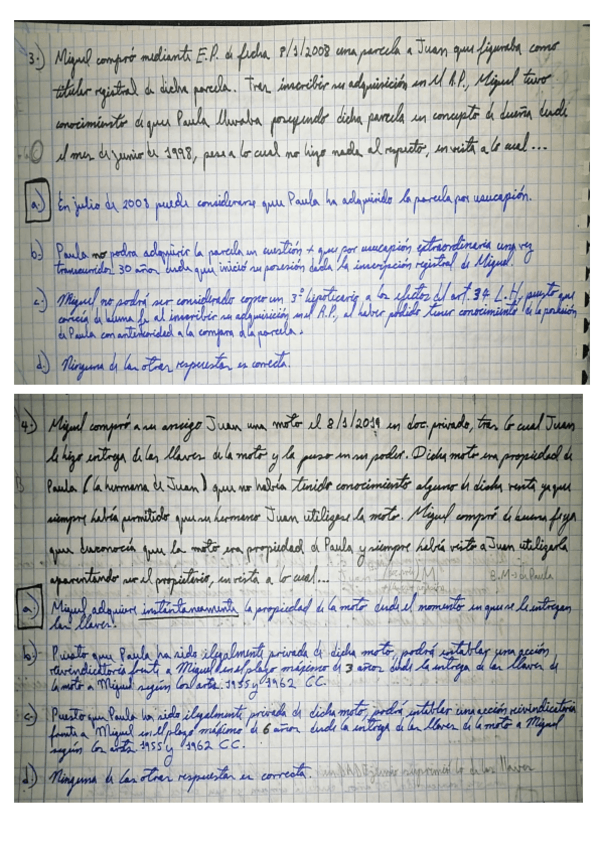 3.) Miguel compró mediante E.P. de fecha 8/1/2008 una parcela a Juan que figuraba como
titular registral de dicha parcela. Tras inscribir su adquisición en el R.P., Miguel tuvo
conocimiento de que Paula llevaba poseyendo dicha parcela en concepto de dueña desde
el mes de junio de 1998, pese a lo cual no hizo nada al respecto, en vista a lo cual...
a.) En julio de 2008 puede considerarse que Paula ha adquirido la parcela por usucapión.
b.) Paula no podrá adquirir la parcela en cuestión + que por usucapión extraordinaria una vez
transcurridos 30 años desde que inició su posesión dada la inscripción registral de Miguel.
c.) Miguel no podrá ser considerado como un 3º hipotecario a los efectos del art. 34 L.H, puesto que
carecía de buena fe al inscribir su adquisición en el R.P., al haber podido tener conocimiento de la posesión
de Paula con anterioridad a la compra de la parcela.
d.) Ninguna de las otras respuestas es correcta.
4.) Miguel compró a su amigo Juan una moto el 8/1/2019 en doc. privado, tras lo cual Juan
le hizo entrega de las llaves de la moto y la puso en su poder. Dicha moto era propiedad de
Paula (la hermana de Juan) que no había tenido conocimiento alguno de dicha venta ya que
siempre había permitido que su hermano Juan utilizase la moto. Miguel compró de buena fe ya
que desconocía que la moto era propiedad de Paula y siempre había visto a Juan utilizarla
aparentando ser el propietario, en vista a lo cual...
a.) Miguel adquiere instantáneamente la propiedad de la moto desde el momento en que se le entregan
las llaves.
b.) Puesto que Paula ha sido ilegalmente privada de dicha moto, podrá entablar una acción
reivindicatoria frente a Miguel en el plazo máximo de 3 años desde la entrega de las llaves de
la moto a Miguel según los arts. 1955 y 1962 CC.
c.) Puesto que Paula ha sido ilegalmente privada de dicha moto, podrá entablar una acción reivindicatoria
frente a Miguel en el plazo máximo de 6 años desde la entrega de las llaves de la moto a Miguel
según los arts. 1955 y 1962 CC.
d.) Ninguna de las otras respuestas es correcta.